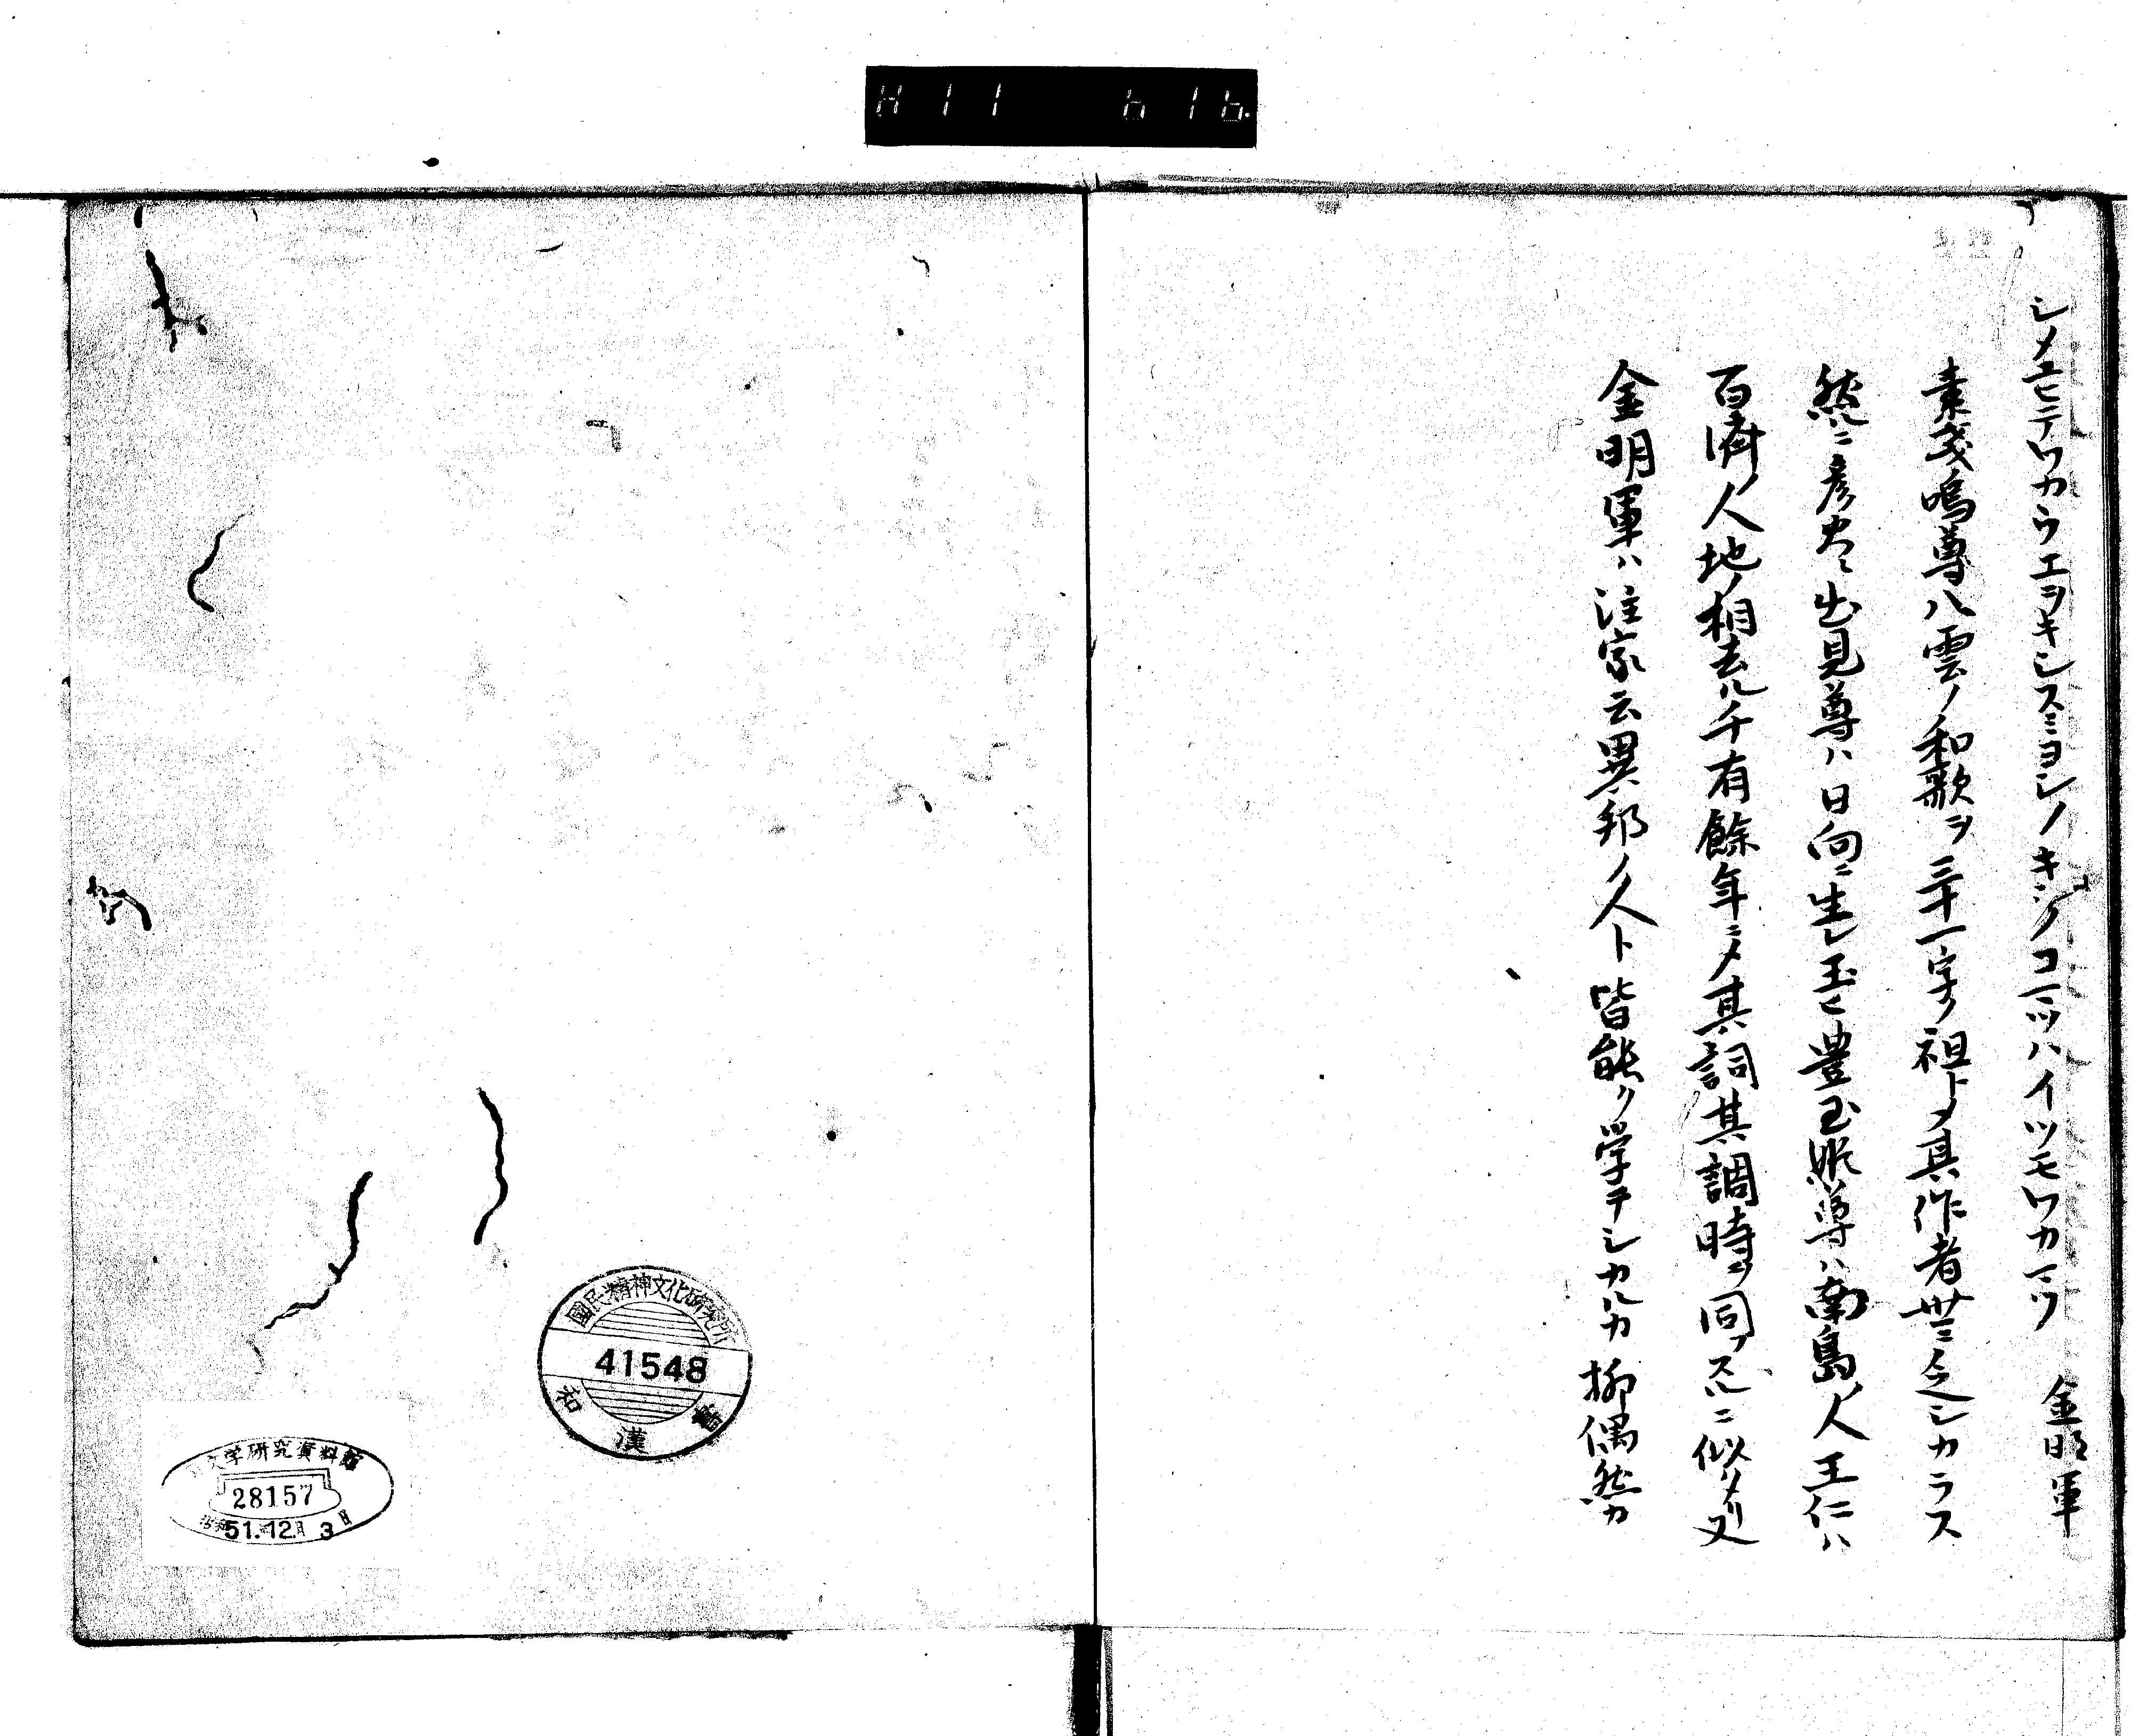 シメユヒテワカウエヲキシスミヨシノキシノコマツハイツモワカマツ 金明軍
素戔嗚尊八雲ノ和歌ヲ三十一字ノ祖トメ其作者世ニ乏シカラス
然ルニ彦火々出見尊ハ日向ニ生レ玉ヒ豊玉姫尊ハ南島ノ人王仁ハ
百済ノ人地ノ相去ル千有餘年ニメ其詞其調時ヲ同フスルニ似タリ又
金明軍ハ注家云異邦ノ人ト皆能ク学ヲシカルカ抑偶然カ
國民精神文化研究所
41548
和漢書
文学研究資料館
28157
昭和51.12月3日